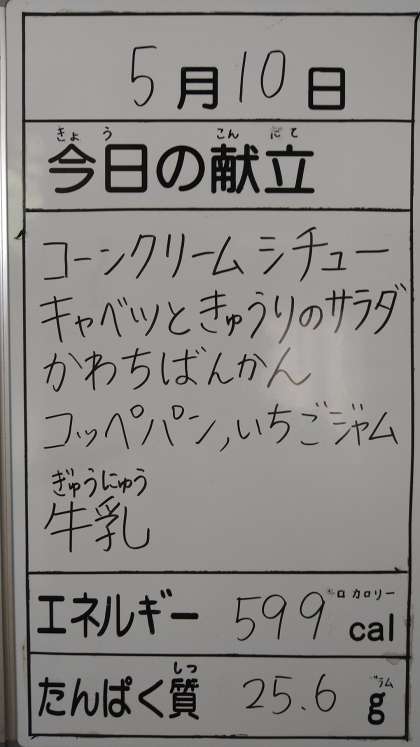 5月10日
きょう こんだて
今日の献立
コーンクリームシチュー
キャベツときゅうりのサラダ
かわちばんかん
コッペパン,いちごジャム
ぎゅうにゅう
牛乳
キロカロリー
エネルギー 599 cal
しつ グラム
たんぱく質 25.6 g